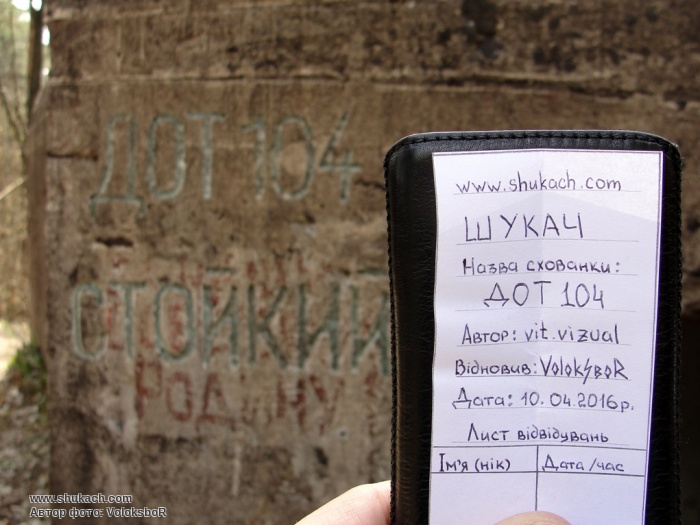 ДОТ 104
СТОЙКИЙ
РОДИНУ
www.shukach.com
ШУКАЧ
Назва схованки:
ДОТ 104
Автор: vit.vizual
Відновив: VolokSboR
Дата: 10.04.2016р.
Лист відвідувань
Ім'я (нік) Дата/час
www.shukach.com
Автор фото: VoloksboR